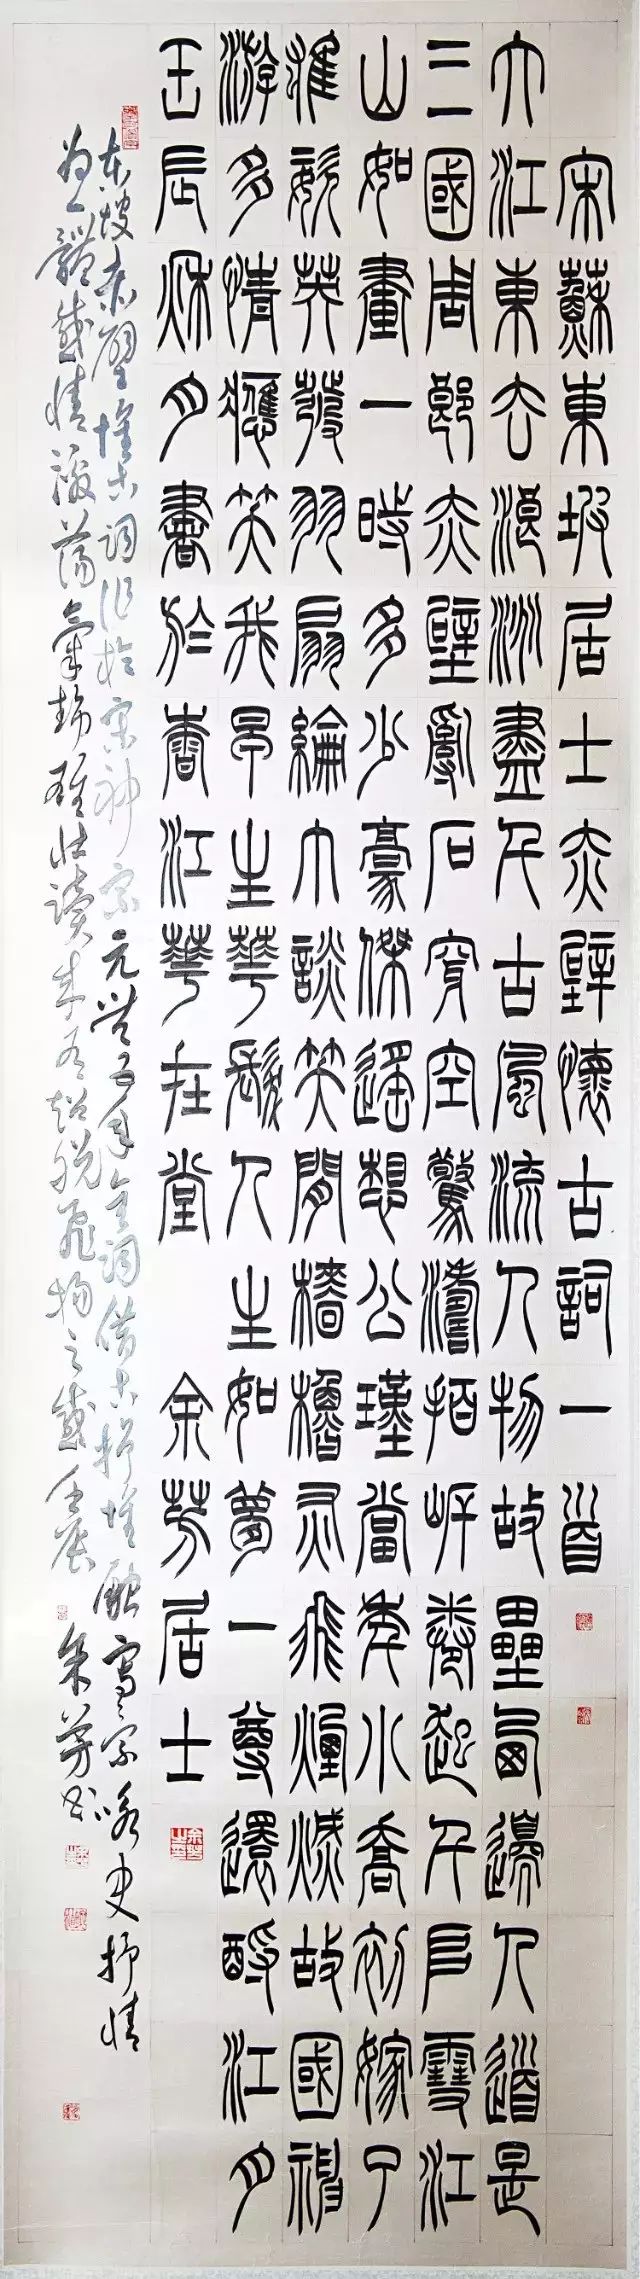 宋蘇東坡居士赤壁懷古詞一首
大江東去浪淘盡千古風流人物故壘西邊人道是
三國周郎赤壁亂石穿空驚濤拍岸卷起千堆雪江
山如畫一時多少豪傑遙想公瑾當年小喬初嫁了
雄姿英發羽扇綸巾談笑間檣櫓灰飛煙滅故國神
游多情應笑我早生華髮人生如夢一尊還酹江月
壬辰秋月書於香江華在堂 余芳居士
東坡赤壁懷古詞作於宋神宗元豐五年全詞借古抒懷融寫景詠史抒情
為一體感情激蕩氣勢雄壯讀來有超脫飛揚之感壬辰余芳书